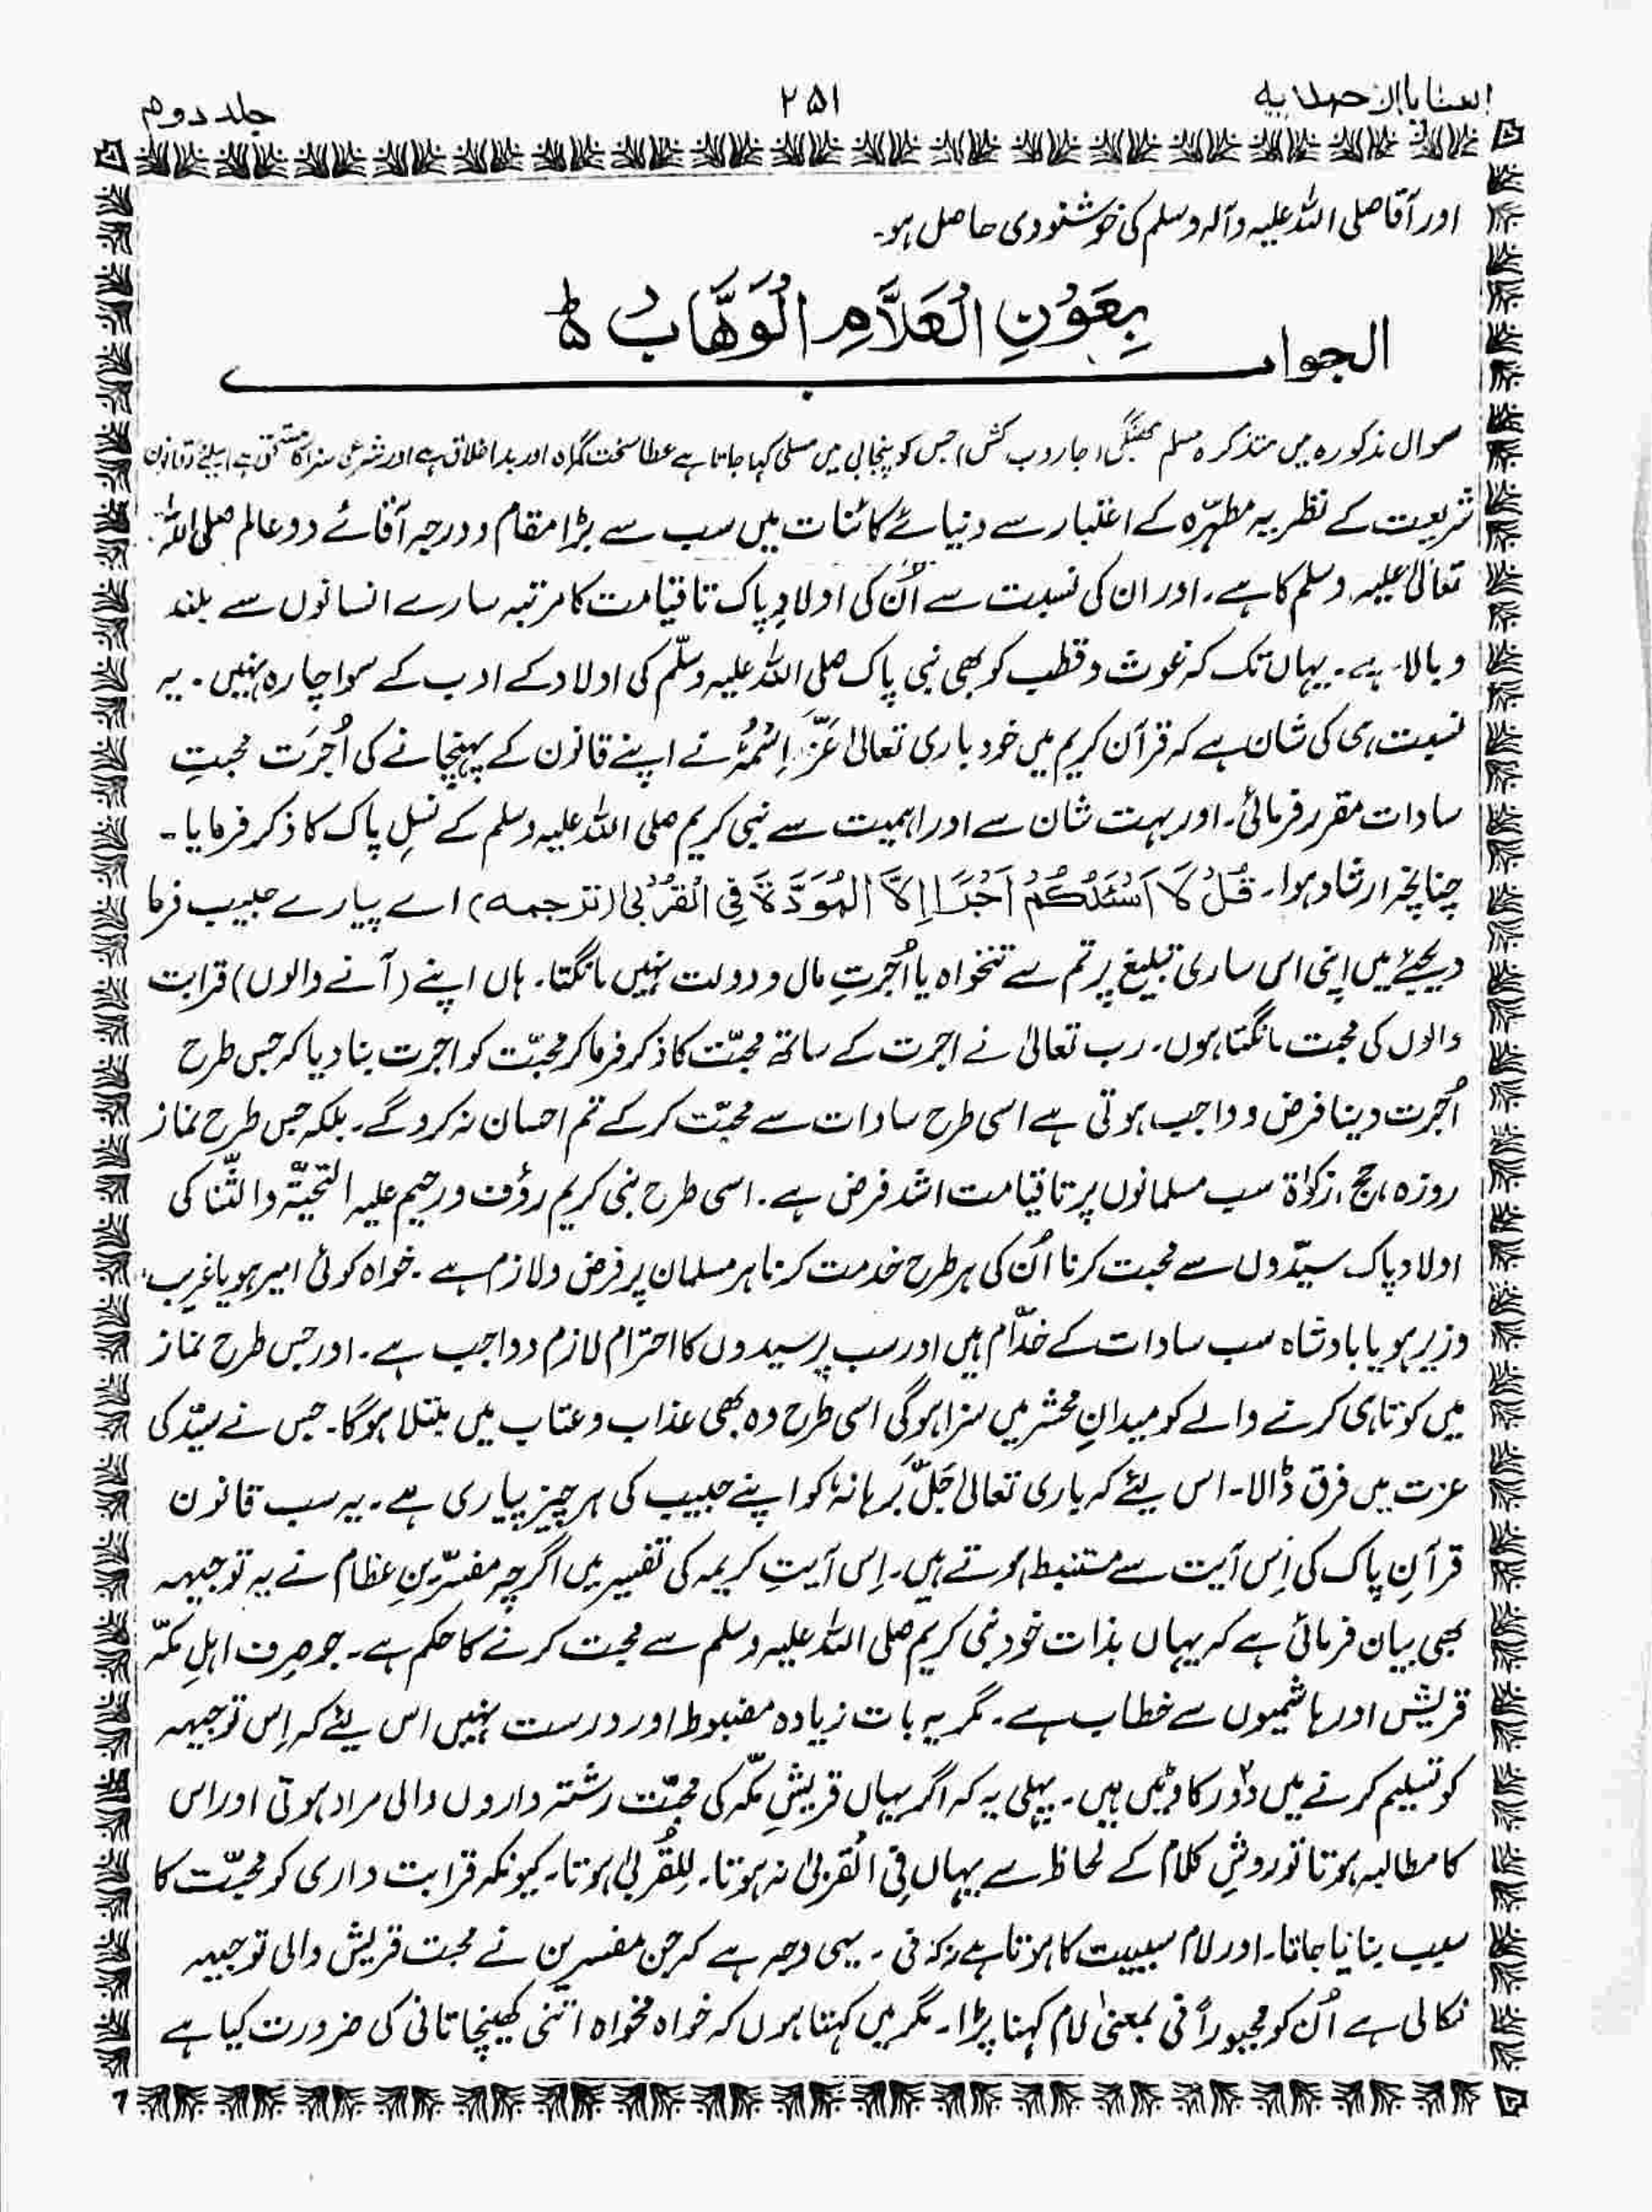 العطایا الاحمدیہ ۲۵۱ جلد دوم
اور آقا صلی اللہ علیہ وآلہ وسلم کی خوشنودی حاصل ہو۔
بِعَوْنِ الْعَلَّامِ الْوَهَّابُ ط
الجواب
سوال مذکورہ میں متذکرہ مسلم بھنگی، جاروب کش، جس کو پنجابی میں مسلی کہا جاتا ہے عطا سخت گمراہ اور بداخلاق ہے اور شرعی سزا کا مستحق ہے اسلئے قانون
شریعت کے نظریہ مطہّرہ کے اعتبار سے دنیائے کائنات میں سب سے بڑا مقام و درجہ آقائے دو عالم صلی اللہ
تعالیٰ علیہ وسلم کا ہے۔ اور ان کی نسبت سے اُن کی اولادِ پاک تا قیامت کا مرتبہ سارے انسانوں سے بلند
و بالا ہے۔ یہاں تک کہ غوث و قطب کو بھی نبی پاک صلی اللہ علیہ وسلّم کی اولاد کے ادب کے سوا چارہ نہیں۔ یہ
نسبت ہی کی شان ہے کہ قرآن کریم میں خود باری تعالیٰ عَزَّ اِسْمُہٗ نے اپنے قانون کے پہنچانے کی اُجرَت محبتِ
سادات مقرر فرمائی۔ اور بہت شان سے اور اہمیت سے نبی کریم صلی اللہ علیہ وسلم کے نسلِ پاک کا ذکر فرمایا۔
چنانچہ ارشاد ہوا۔ قُلْ لَا اَسْئَلُكُمْ اَجْرًا اِلَّا الْمَوَدَّةَ فِي الْقُرْبٰى (ترجمہ) اے پیارے حبیب فرما
دیجئے میں اپنی اس ساری تبلیغ پر تم سے تنخواہ یا اُجرتِ مال و دولت نہیں مانگتا۔ ہاں اپنے (آنے والوں) قرابت
والوں کی محبت مانگتا ہوں۔ رب تعالیٰ نے اجرت کے ساتھ محبّت کا ذکر فرما کر محبّت کو اجرت بنا دیا کہ جس طرح
اُجرت دینا فرض و واجب ہوتی ہے اسی طرح سادات سے محبّت کر کے تم احسان نہ کرو گے۔ بلکہ جس طرح نماز
روزہ، حج، زکوٰۃ سب مسلمانوں پر تا قیامت اشد فرض ہے۔ اسی طرح نبی کریم روؤف و رحیم علیہ التحیّۃ والثّنا کی
اولاد پاک سیّدوں سے محبت کرنا اُن کی ہر طرح خدمت کرنا ہر مسلمان پر فرض و لازم ہے۔ خواہ کوئی امیر ہو یا غریب،
وزیر ہو یا بادشاہ سب سادات کے خدّام ہیں اور سب پر سیدوں کا احترام لازم و واجب ہے۔ اور جس طرح نماز
میں کوتاہی کرنے والے کو میدانِ محشر میں سزا ہوگی اسی طرح وہ بھی عذاب و عتاب میں مبتلا ہوگا۔ جس نے سیّد کی
عزت میں فرق ڈالا۔ اس لیئے کہ باری تعالیٰ جَلَّ بُرہانہٗ کو اپنے حبیب کی ہر چیز پیاری ہے۔ یہ سب قانون
قرآنِ پاک کی اِس آیت سے مستنبط ہوتے ہیں۔ اِس آیتِ کریمہ کی تفسیر میں اگرچہ مفسّرینِ عظام نے یہ توجیہہ
بھی بیان فرمائی ہے کہ یہاں بذات خود نبی کریم صلی اللہ علیہ وسلم سے محبت کرنے کا حکم ہے۔ جو صرف اہلِ مکّہ
قریش اور ہاشمیوں سے خطاب ہے۔ مگر یہ بات زیادہ مضبوط اور درست نہیں اس لیئے کہ اِس توجیہہ
کو تسلیم کرنے میں دو۲ رکاوٹیں ہیں۔ پہلی یہ کہ اگر یہاں قریشِ مکّہ کی محبّت رشتہ داروں والی مراد ہوتی اور اس
کا مطالبہ ہوتا تو روشِ کلام کے لحاظ سے یہاں فِی الْقُربیٰ نہ ہوتا۔ لِلقُربیٰ ہوتا۔ کیونکہ قرابت داری کو محبّت کا
سبب بنایا جاتا۔ اور لام سببیت کا ہوتا ہے نہ کہ فی۔ یہی وجہ ہے کہ جن مفسرین نے محبت قریش والی توجیہہ
نکالی ہے اُن کو مجبوراً فی بمعنیٰ لام کہنا پڑا۔ مگر میں کہتا ہوں کہ خواہ مخواہ اتنی کھینچا تانی کی ضرورت کیا ہے